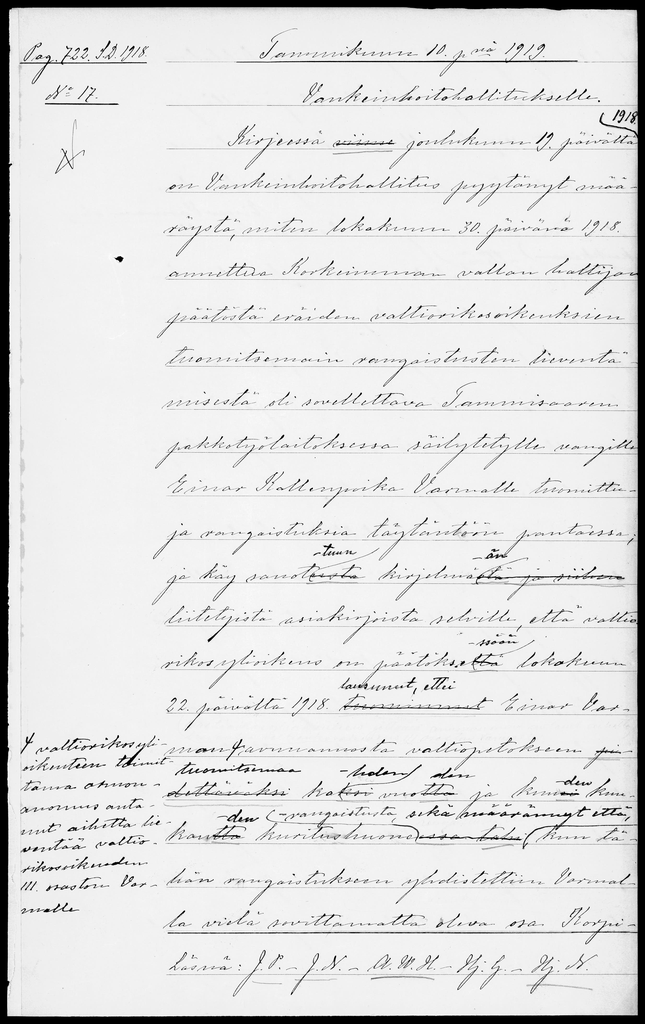 Pag. 722. S.D. 1918.
Tammikuun 10. p:nä 1919.
No 17.
Vankeinhoitohallitukselle.
1918
Kirjeessä viime joulukuun 19. päivältä
on Vankeinhoitohallitus pyytänyt mää-
räystä, miten lokakuun 30. päivänä 1918.
annettua Korkeimman vallan haltijan
päätöstä eräiden valtiorikosoikeuksien
tuomitsemain rangaistusten lieventä-
misestä oli sovellettava Tammisaaren
pakkotyölaitoksessa säilytetylle vangille
Einar Kallenpoika Varmalle tuomittu-
ja rangaistuksia täytäntöön pantaessa;
-tuun -än
ja käy sanotusta kirjelmästä ja siihen
liitetyistä asiakirjoista selville, että valtio
-ssään
rikosylioikeus on päätöksellä lokakuun
lausunut, ettei
22. päivältä 1918. tuominnut Einar Var-
man avunannosta valtiopetokseen
tuomitsemaa -hden den den
kaksi vuotta ja kuusi kuu-
-den -rangaistusta, sekä määrännyt että,
kautta kuritushuoneessa kun tä-
hän rangaistukseen yhdistettiin Varmal-
la vielä sovittamatta oleva osa Korpi-
Läsnä: J. P. – J. N. – A. W. H. – Hj. G. – Hj. N.
valtiorikosyli-
oikeuteen toimit-
tama armon-
anomus anta-
nut aihetta lie-
ventää valtio-
rikosoikeuden
III. osaston Var-
malle